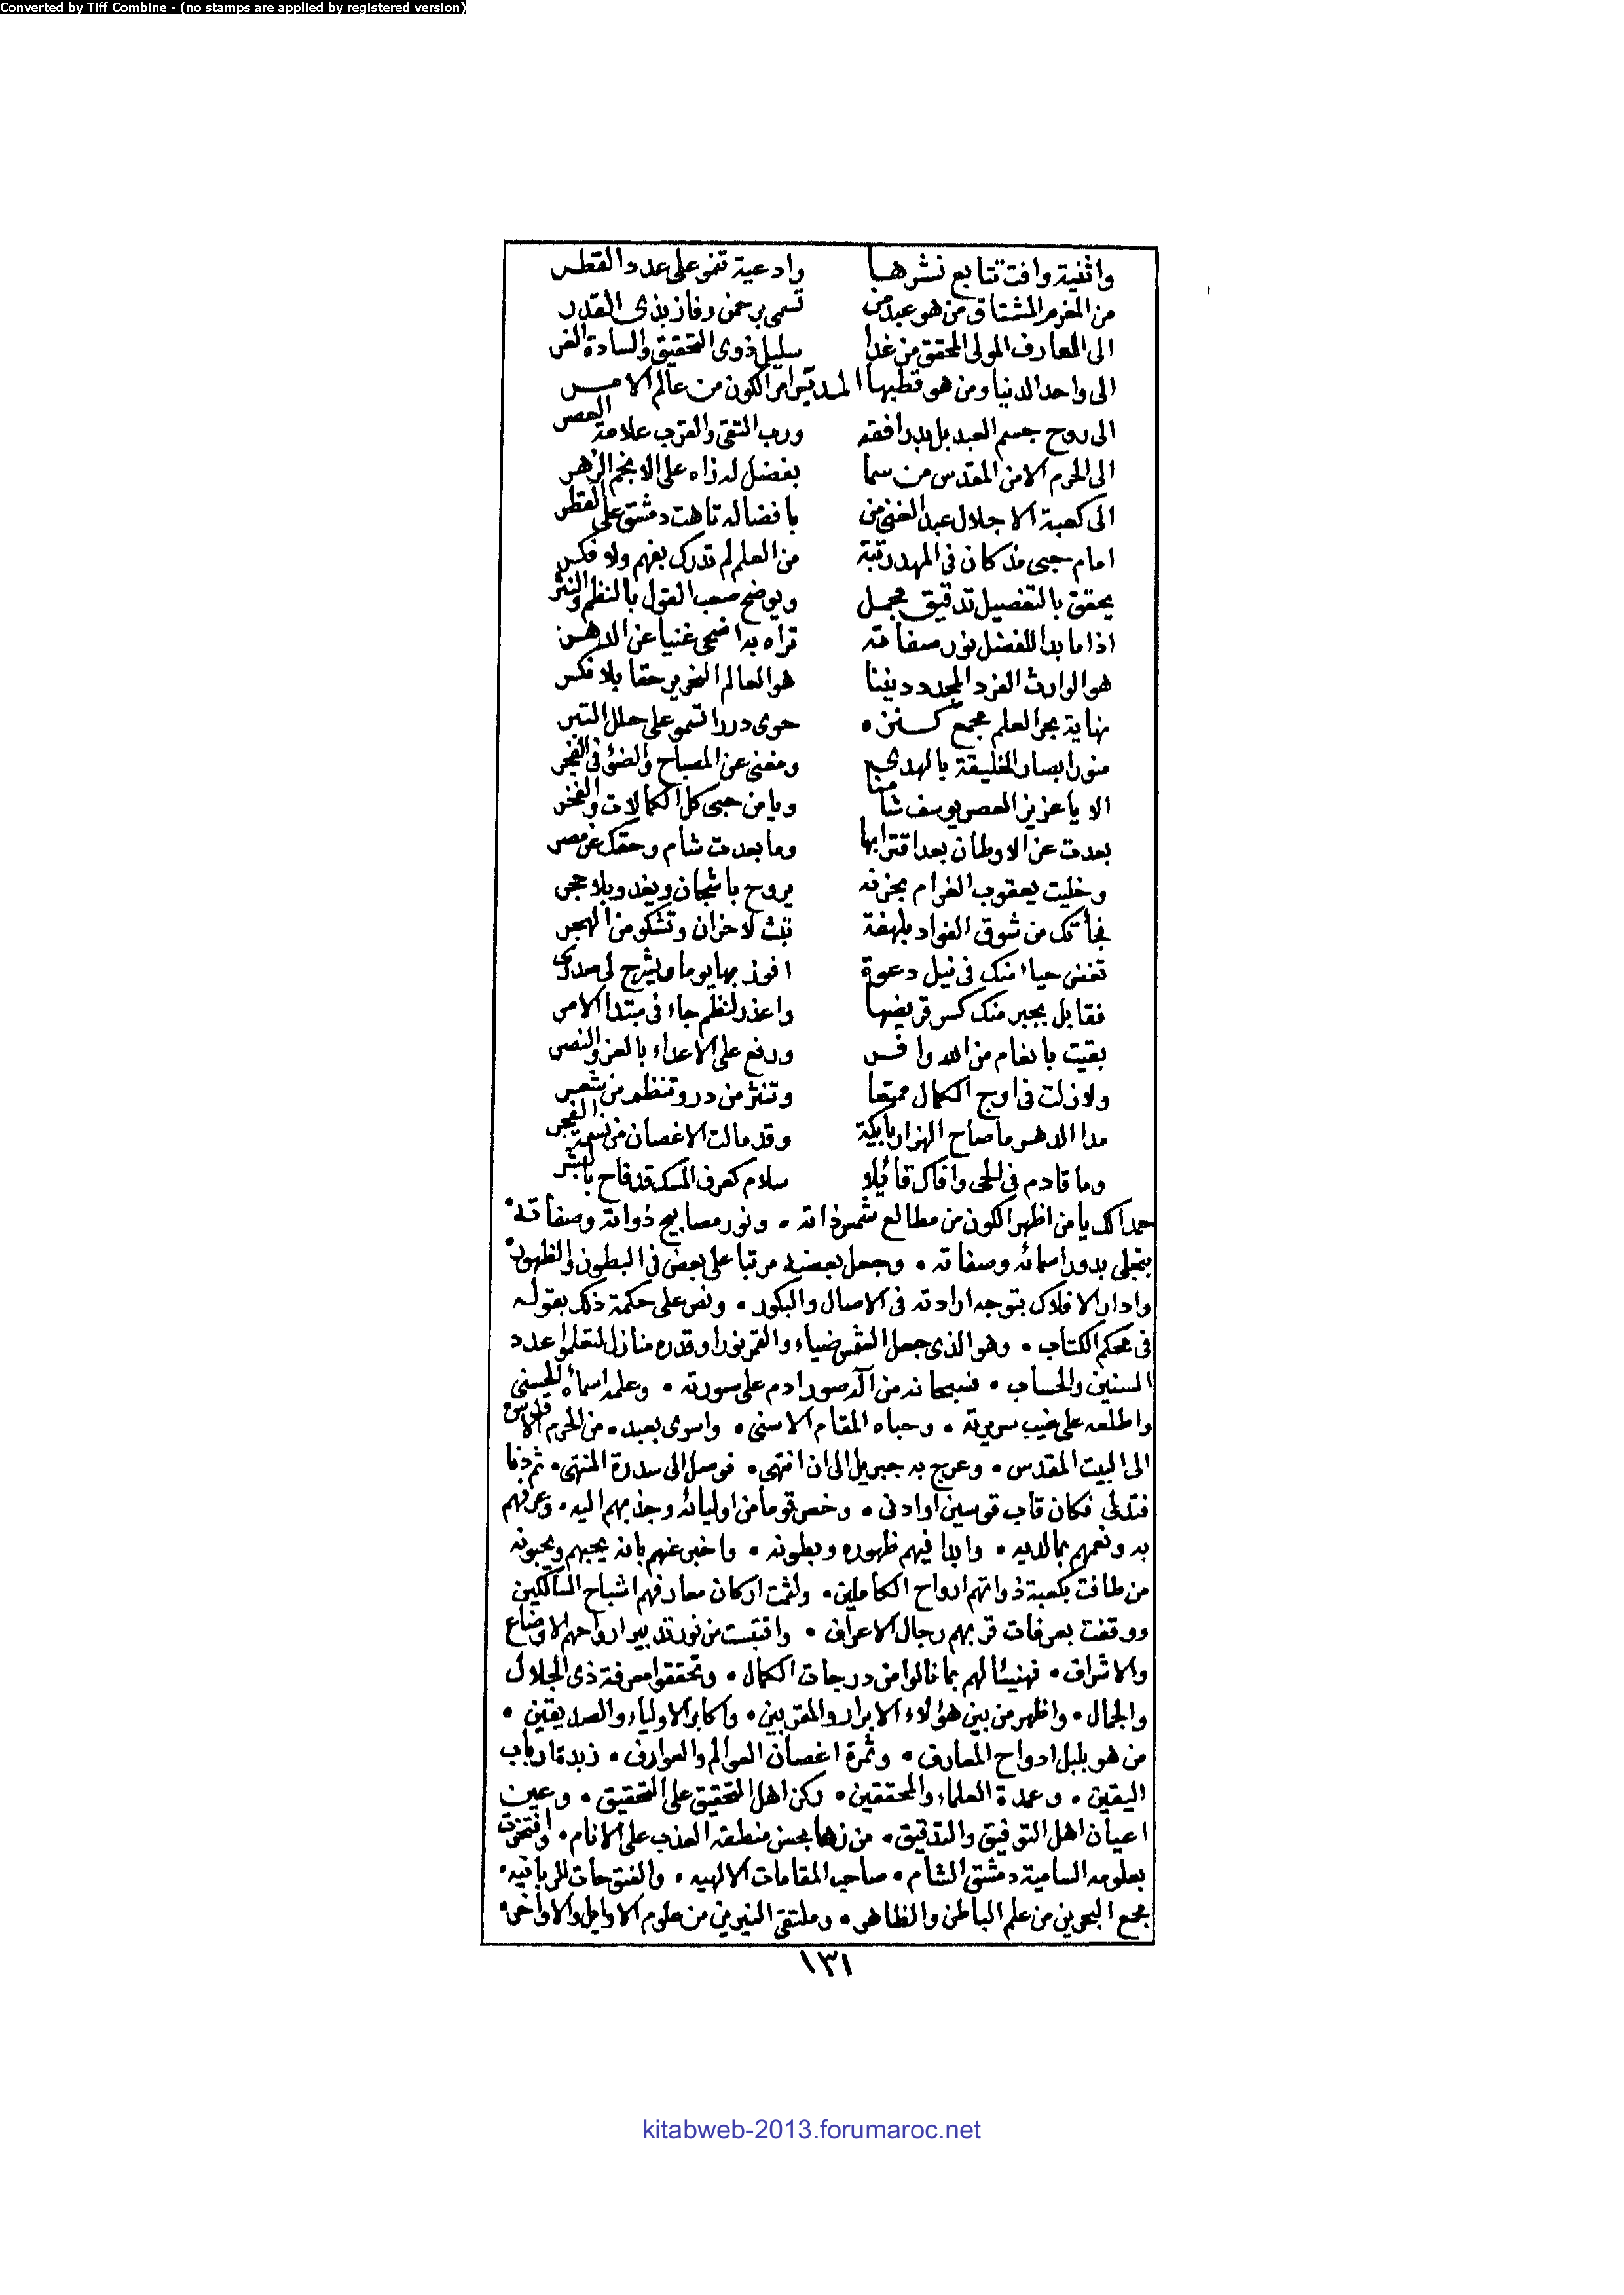 Converted by Tiff Combine - (no stamps are applied by registered version)
واثنية وافت تتابع نشرها وادعية تنمو على عدد القطر
من المغرم المشتاق من هو عبد من تسمى برحمن وفاز بذى القدر
الى العارف المولى المحقق من غدا سليل ذوى التحقيق والسادة الغر
الى واحد الدنيا ومن هو قطبها المدبر امر الكون من عالم الامر
الى روح جسم العبد بل بدر افقه ورب التقى والقرب علامة العصر
الى الحرم الامن المقدس من سما بفضل له زاه على الانجم الزهر
الى كعبة الاجلال عبد الغنى من بافضاله تاهت دمشق على القطر
امام حبى مذ كان فى المهد رتبة من العلم لم تدرك بفهم ولا فكر
يحقق بالتفصيل تدقيق مجمل ويوضح صعب القول بالنظم والنثر
اذا ما بدا للفضل نور صفاته تراه بدا ضحى غنيا عن الدهر
هو الوارث الفرد المجدد ديننا هو العالم النحرير حقا بلا فكر
نهاية بحر العلم مجمع كنزه حوى دررا تسمو على حلل التبر
منور ابصار الخليقة بالهدى ومغنى عن المصباح والضوء فى الفجر
الا يا عزيز العصر يوسف شامنا ويا من حبى كل الكمالات والفخر
بعدت عن الاوطان بعد اقترابها وما بعدت شام وحقك عن مصر
وخليت يعقوب الغرام بحزنه يروح باشجان ويغدو بلا حجر
فجأتك من شوق الفواد بلهفة تبث لاحزان وتشكو من الهجر
تغض حياء منك فى نيل دعوة افوز بها يوما ويشرح لى صدرى
فقابل بجبر منك كسر قريضها واعذر لنظم جاء فى مبتدا الامر
بقيت بانعام من الله وافر ورفع على الاعداء بالعز والنصر
ولا زلت فى اوج الكمال ممتعا وتنثر من در وتنظم من شعر
مدا الدهر ما صاح الهزار بايكة وقد مالت الاغصان من نسمة الفجر
وما قادم فى الحى وافاك قائلا سلام كعرف المسك قد فاح بالبشر
حمدا لك يا من اظهر الكون من مطالع شمس ذاته • ونور مصابيح ذواته وصفاته •
بتجلى بدور اسمائه وصفاته • وجعل بعضه مرتبا على بعض فى البطون والظهور •
وادار الافلاك بتوجه ارادته فى الاصال والبكور • ونص على حكمة ذلك بقوله
فى محكم الكتاب • وهو الذى جعل الشمس ضياء والقمر نورا وقدره منازل لتعلموا عدد
السنين والحساب • فسبحانه من اله صور ادم على صورته • وعلمه اسمائه الحسنى
واطلعه على غيب سريرته • وحباه المقام الاسنى • واسرى بعبده من الحرم الاقدس
الى البيت المقدس • وعرج به جبريل الى ان انتهى • فوصل الى سدرة المنتهى • ثم دنا
فتدلى فكان قاب قوسين او ادنى • وخص قوما من اوليائه وجذبهم اليه • وعرفهم
به ونعمهم بما لديه • وابدا فيهم ظهوره وبطونه • واخبر عنهم بانه يحبهم ويحبونه
من طافت بكعبة ذواتهم ارواح الكاملين • ولثمت اركان معارفهم اشباح السالكين
ووقفت بعرفات قربهم رجال الاعراف • واقتبست من نور تدبير ارواحهم الاوضاع
والاشراف • فهنيئا لهم بما نالوا من درجات الكمال • وتحققوا معرفة ذى الجلال
والجمال • واظهر من بين هؤلاء الابرار والمقربين • واكابر الاولياء والصديقين •
من هو بلبل ادواح المعارف • وثمرة اغصان العوالم والعوارف • زبدة ارباب
اليقين • وعمدة العلماء والمحققين • ركن اهل التحقيق على التحقيق • وعين
اعيان اهل التوفيق والتدقيق • من زها بحسن منطقه العذب على الانام • وافتخرت
بعلومه السامية دمشق الشام • صاحب المقامات الالهيه • والفتوحات الربانيه •
مجمع البحرين من علم الباطن والظاهر • وملتقى النيرين من علوم الاوايل والاواخر •
١٣١
kitabweb-2013.forumaroc.net